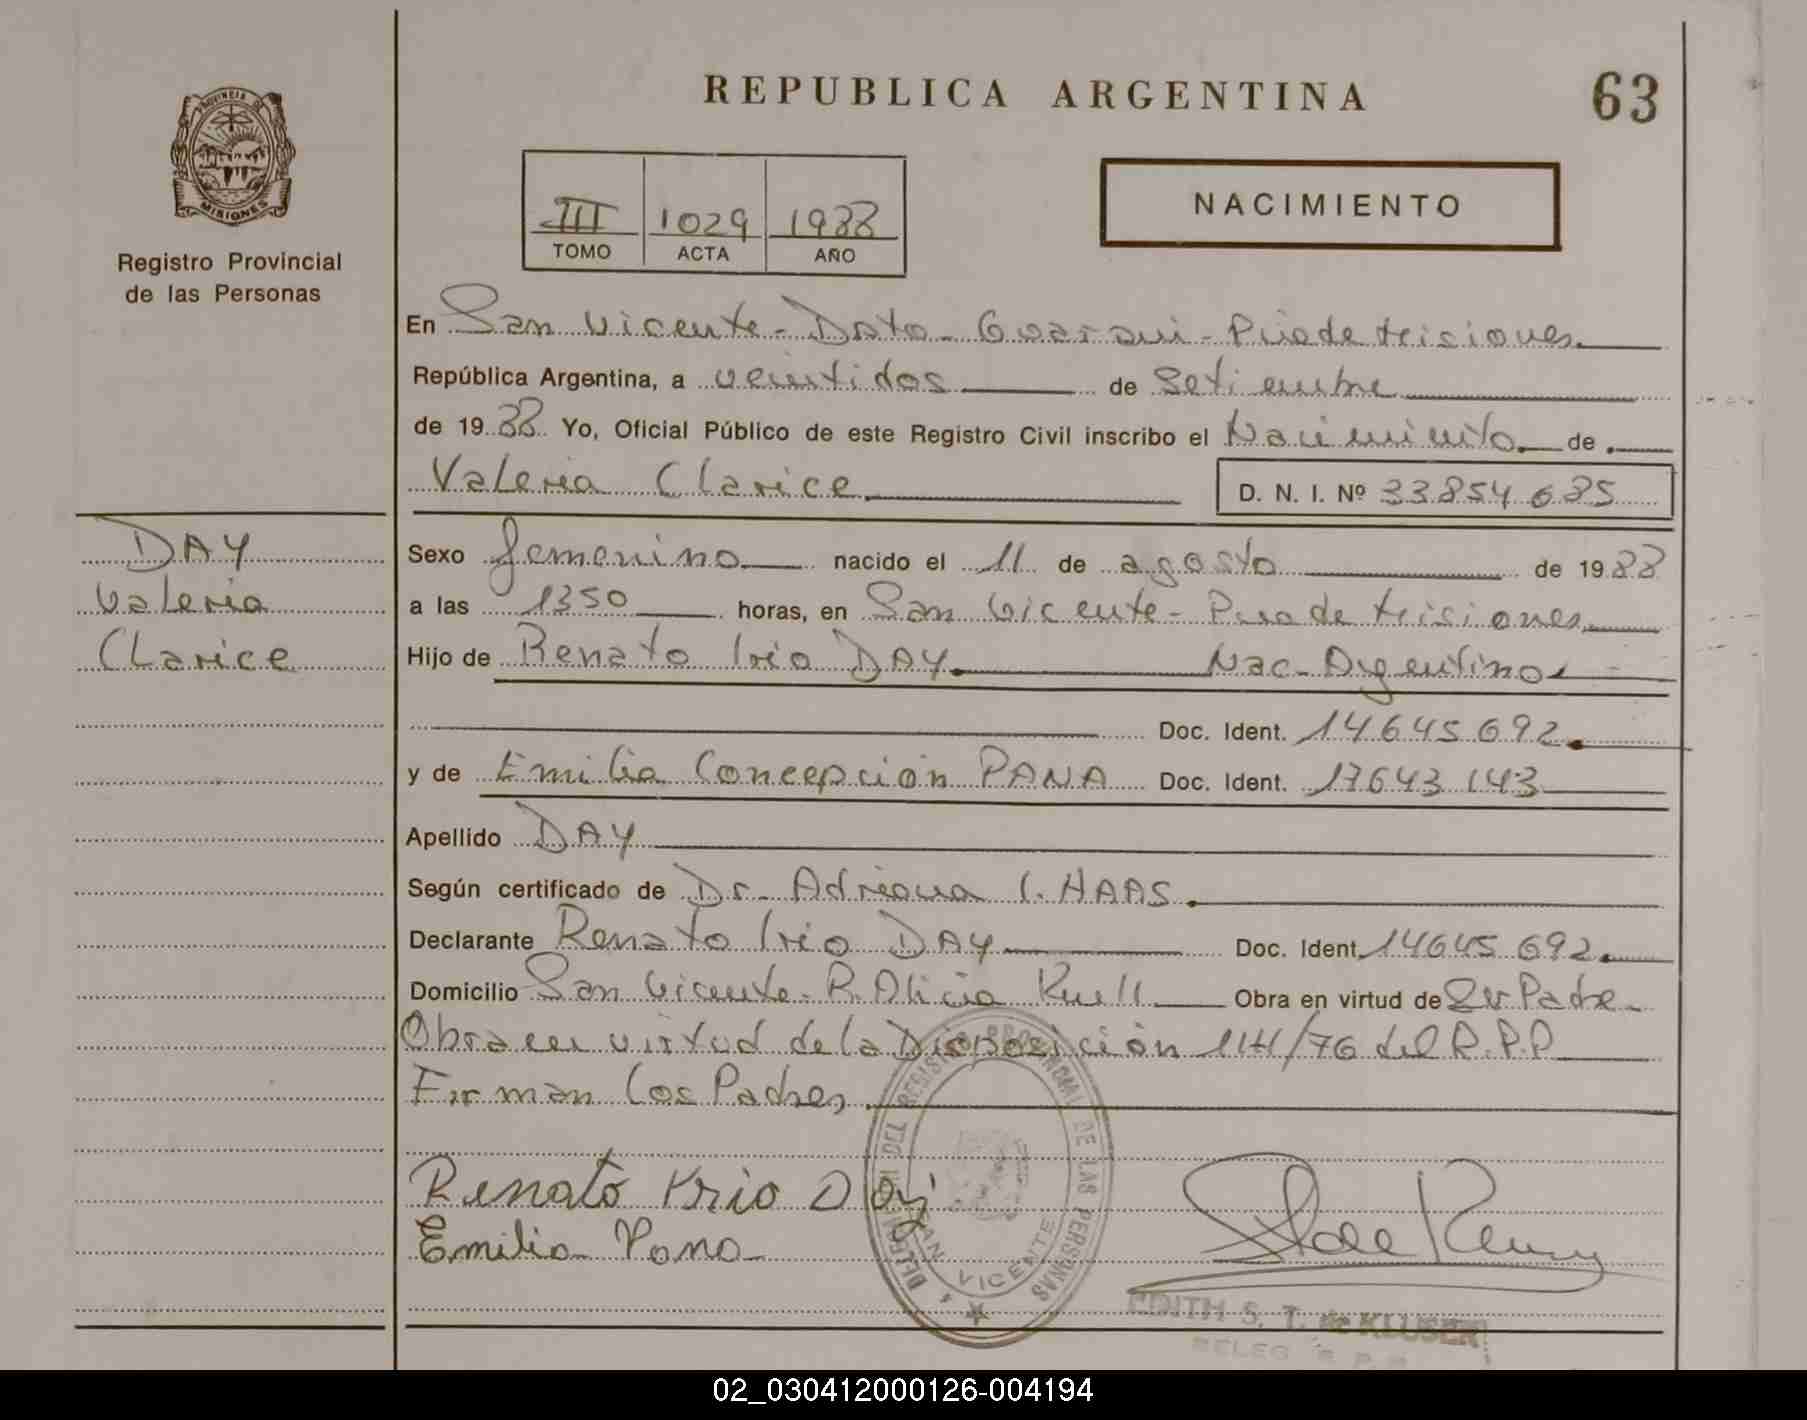 REPUBLICA ARGENTINA
63
PROVINCIA DE
MISIONES
Registro Provincial
de las Personas
III 1029 1988
TOMO ACTA AÑO
NACIMIENTO
En San Vicente - Dpto - Guaraní - Pcia de Misiones
República Argentina, a veintidos de Setiembre
de 1988 Yo, Oficial Público de este Registro Civil inscribo el Nacimiento de
Valeria Clarice
D. N. I. Nº 33854685
DAY
Valeria
Clarice
Sexo femenino nacido el 11 de agosto de 1988
a las 1350 horas, en San Vicente - Pcia de Misiones
Hijo de Renato Irio DAY Nac - Argentino
Doc. Ident. 14645692
y de Emilia Concepción PANA Doc. Ident. 17643143
Apellido DAY
Según certificado de Dr. Adriana I. HAAS
Declarante Renato Irio DAY Doc. Ident. 14645692
Domicilio San Vicente - R. Alicia Obra en virtud de Su Padre
Obra en virtud de la Disposición /76 del R.P.P
Firman los Padres
Renato Krio Day
Emilia Pana
DELEGACION DEL REGISTRO PROVINCIAL DE LAS PERSONAS
SAN VICENTE
EDITH S. T. de KLUSER
DELEG R. P. P.
02_030412000126-004194